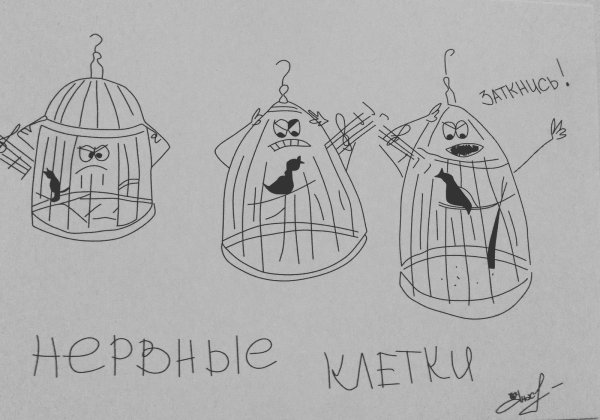 ЗАТКНИСЬ!
НЕРВНЫЕ
КЛЕТКИ